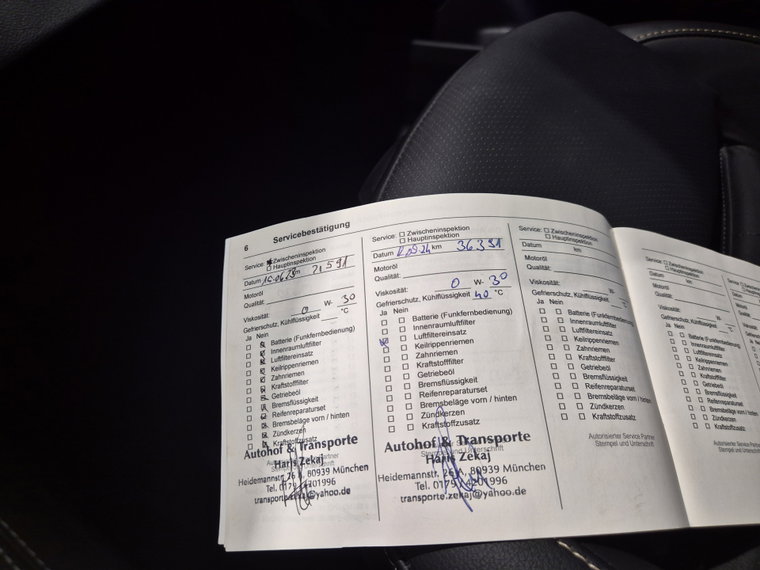 6 Servicebestätigung
Service: Zwischeninspektion
Hauptinspektion
Datum km 21591
Motoröl
Qualität:
Viskosität: 0 W- 30
Gefrierschutz, Kühlflüssigkeit °C
Ja Nein
Batterie (Funkfernbedienung)
Innenraumluftfilter
Luftfiltereinsatz
Keilrippenriemen
Zahnriemen
Kraftstoffilter
Getriebeöl
Bremsflüssigkeit
Reifenreparaturset
Bremsbeläge vorn / hinten
Zündkerzen
Kraftstoffzusatz
Autohof & Transporte
Haris Zekaj
Heidemannstr. 26 A, 80939 München
Tel. 0179
transporte.zekaj@yahoo.de
Service: Zwischeninspektion
Hauptinspektion
Datum km 36391
Motoröl
Qualität:
Viskosität: 0 W- 30
Gefrierschutz, Kühlflüssigkeit 40 °C
Ja Nein
Batterie (Funkfernbedienung)
Innenraumluftfilter
Luftfiltereinsatz
Keilrippenriemen
Zahnriemen
Kraftstoffilter
Getriebeöl
Bremsflüssigkeit
Reifenreparaturset
Bremsbeläge vorn / hinten
Zündkerzen
Kraftstoffzusatz
Autohof & Transporte
Haris Zekaj
Heidemannstr. 26 A, 80939 München
Tel. 0179
transporte.zekaj@yahoo.de
Service: Zwischeninspektion
Hauptinspektion
Datum km
Motoröl
Qualität:
Viskosität: W-
Gefrierschutz, Kühlflüssigkeit °C
Ja Nein
Batterie (Funkfernbedienung)
Innenraumluftfilter
Luftfiltereinsatz
Keilrippenriemen
Zahnriemen
Kraftstoffilter
Getriebeöl
Bremsflüssigkeit
Reifenreparaturset
Bremsbeläge vorn / hinten
Zündkerzen
Kraftstoffzusatz
Autorisierter Service Partner
Stempel und Unterschrift
Service: Zwischeninspektion
Hauptinspektion
Datum km
Motoröl
Qualität:
Viskosität: W-
Gefrierschutz, Kühlflüssigkeit °C
Ja Nein
Batterie (Funkfernbedienung)
Innenraumluftfilter
Luftfiltereinsatz
Keilrippenriemen
Zahnriemen
Kraftstoffilter
Getriebeöl
Bremsflüssigkeit
Reifenreparaturset
Bremsbeläge vorn / hinten
Zündkerzen
Kraftstoffzusatz
Autorisierter Service Partner
Stempel und Unterschrift